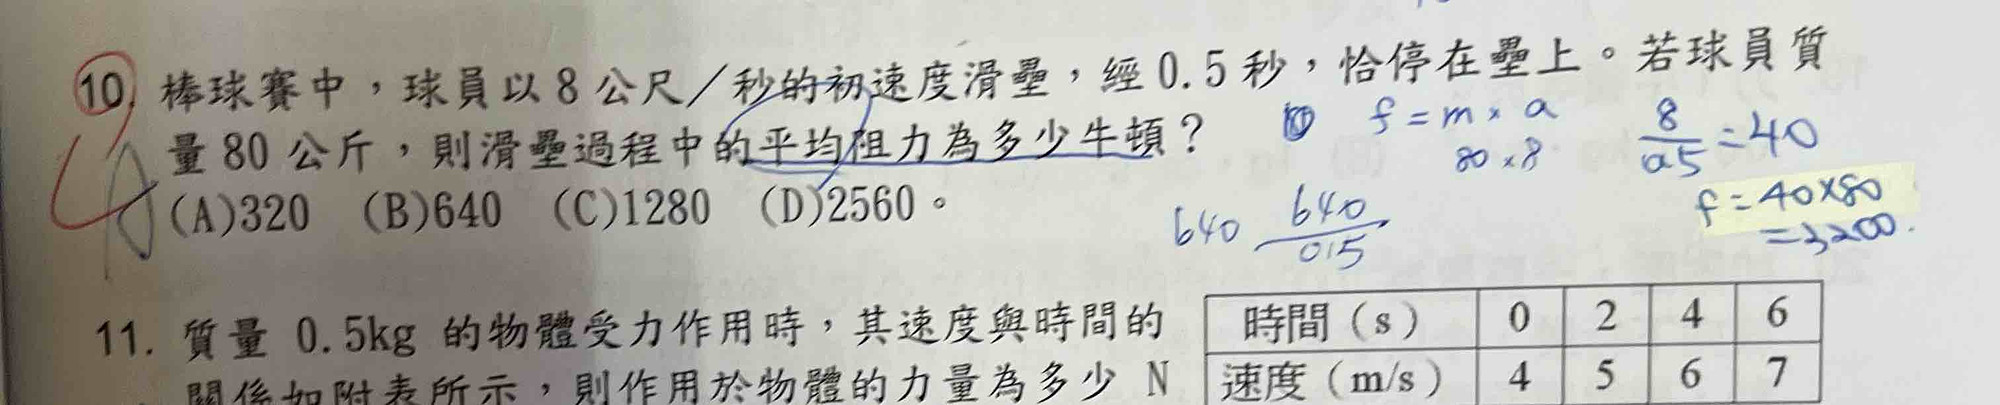 10. 棒球賽中，球員以8公尺／秒的初速度滑壘，經0.5秒，恰停在壘上。若球員質
量80公斤，則滑壘過程中的平均阻力為多少牛頓？
(A)320 (B)640 (C)1280 (D)2560。
A
f = m × a
80 × 8
8/0.5 = 40
640 640/0.5
f = 40×80
= 3200.
11. 質量 0.5kg 的物體受力作用時，其速度與時間的
關係如附表所示，則作用於物體的力量為多少 N
時間（s） 0 2 4 6
速度（m/s） 4 5 6 7